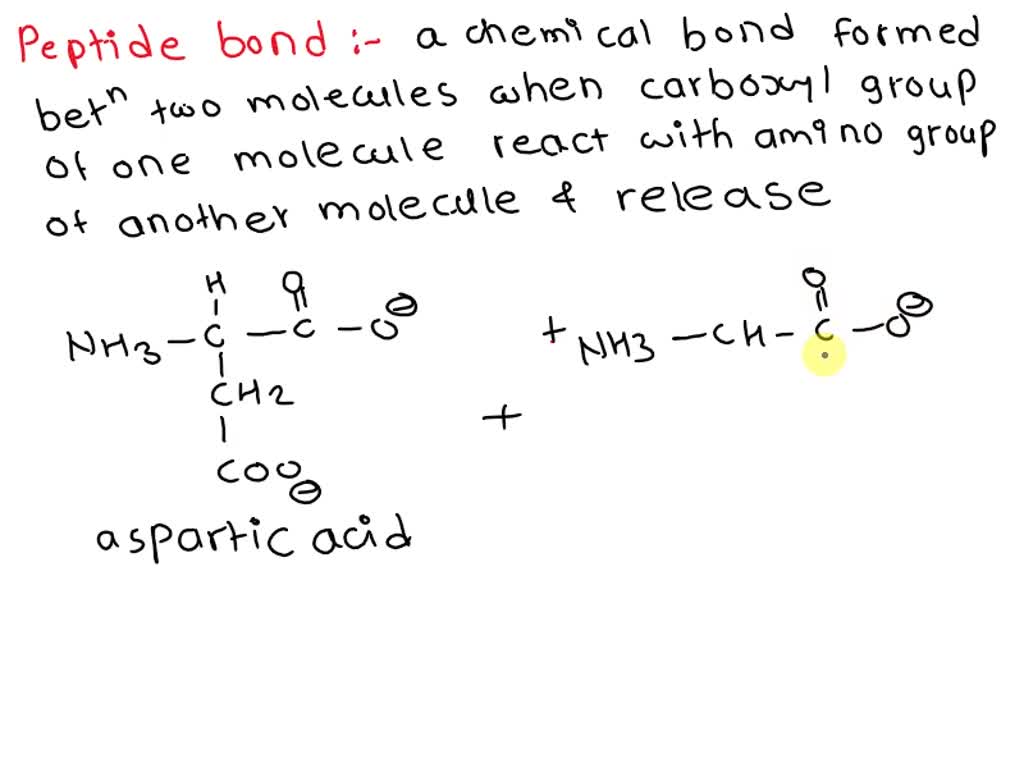 Peptide bond :- a chemical bond formed
betⁿ two molecules when carboxyl group
of one molecule react with amino group
of another molecule & release
H O O
NH3 - C - C - O⊖ + NH3 - CH - C - O⊖
CH2
+
COO⊖
aspartic acid